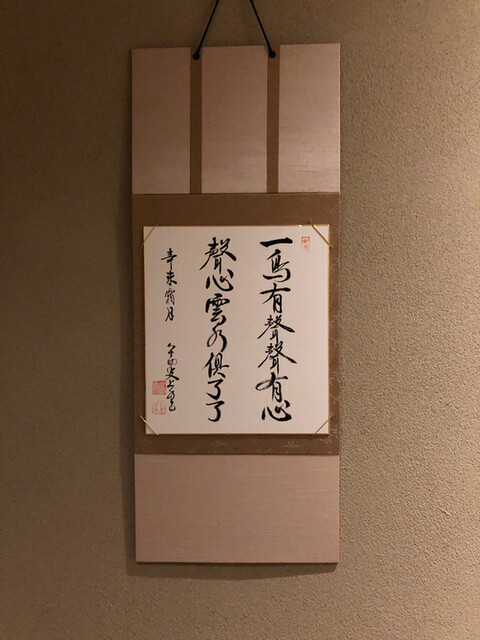 一鳥有聲聲有心
聲心雲水俱了了
辛未霜月